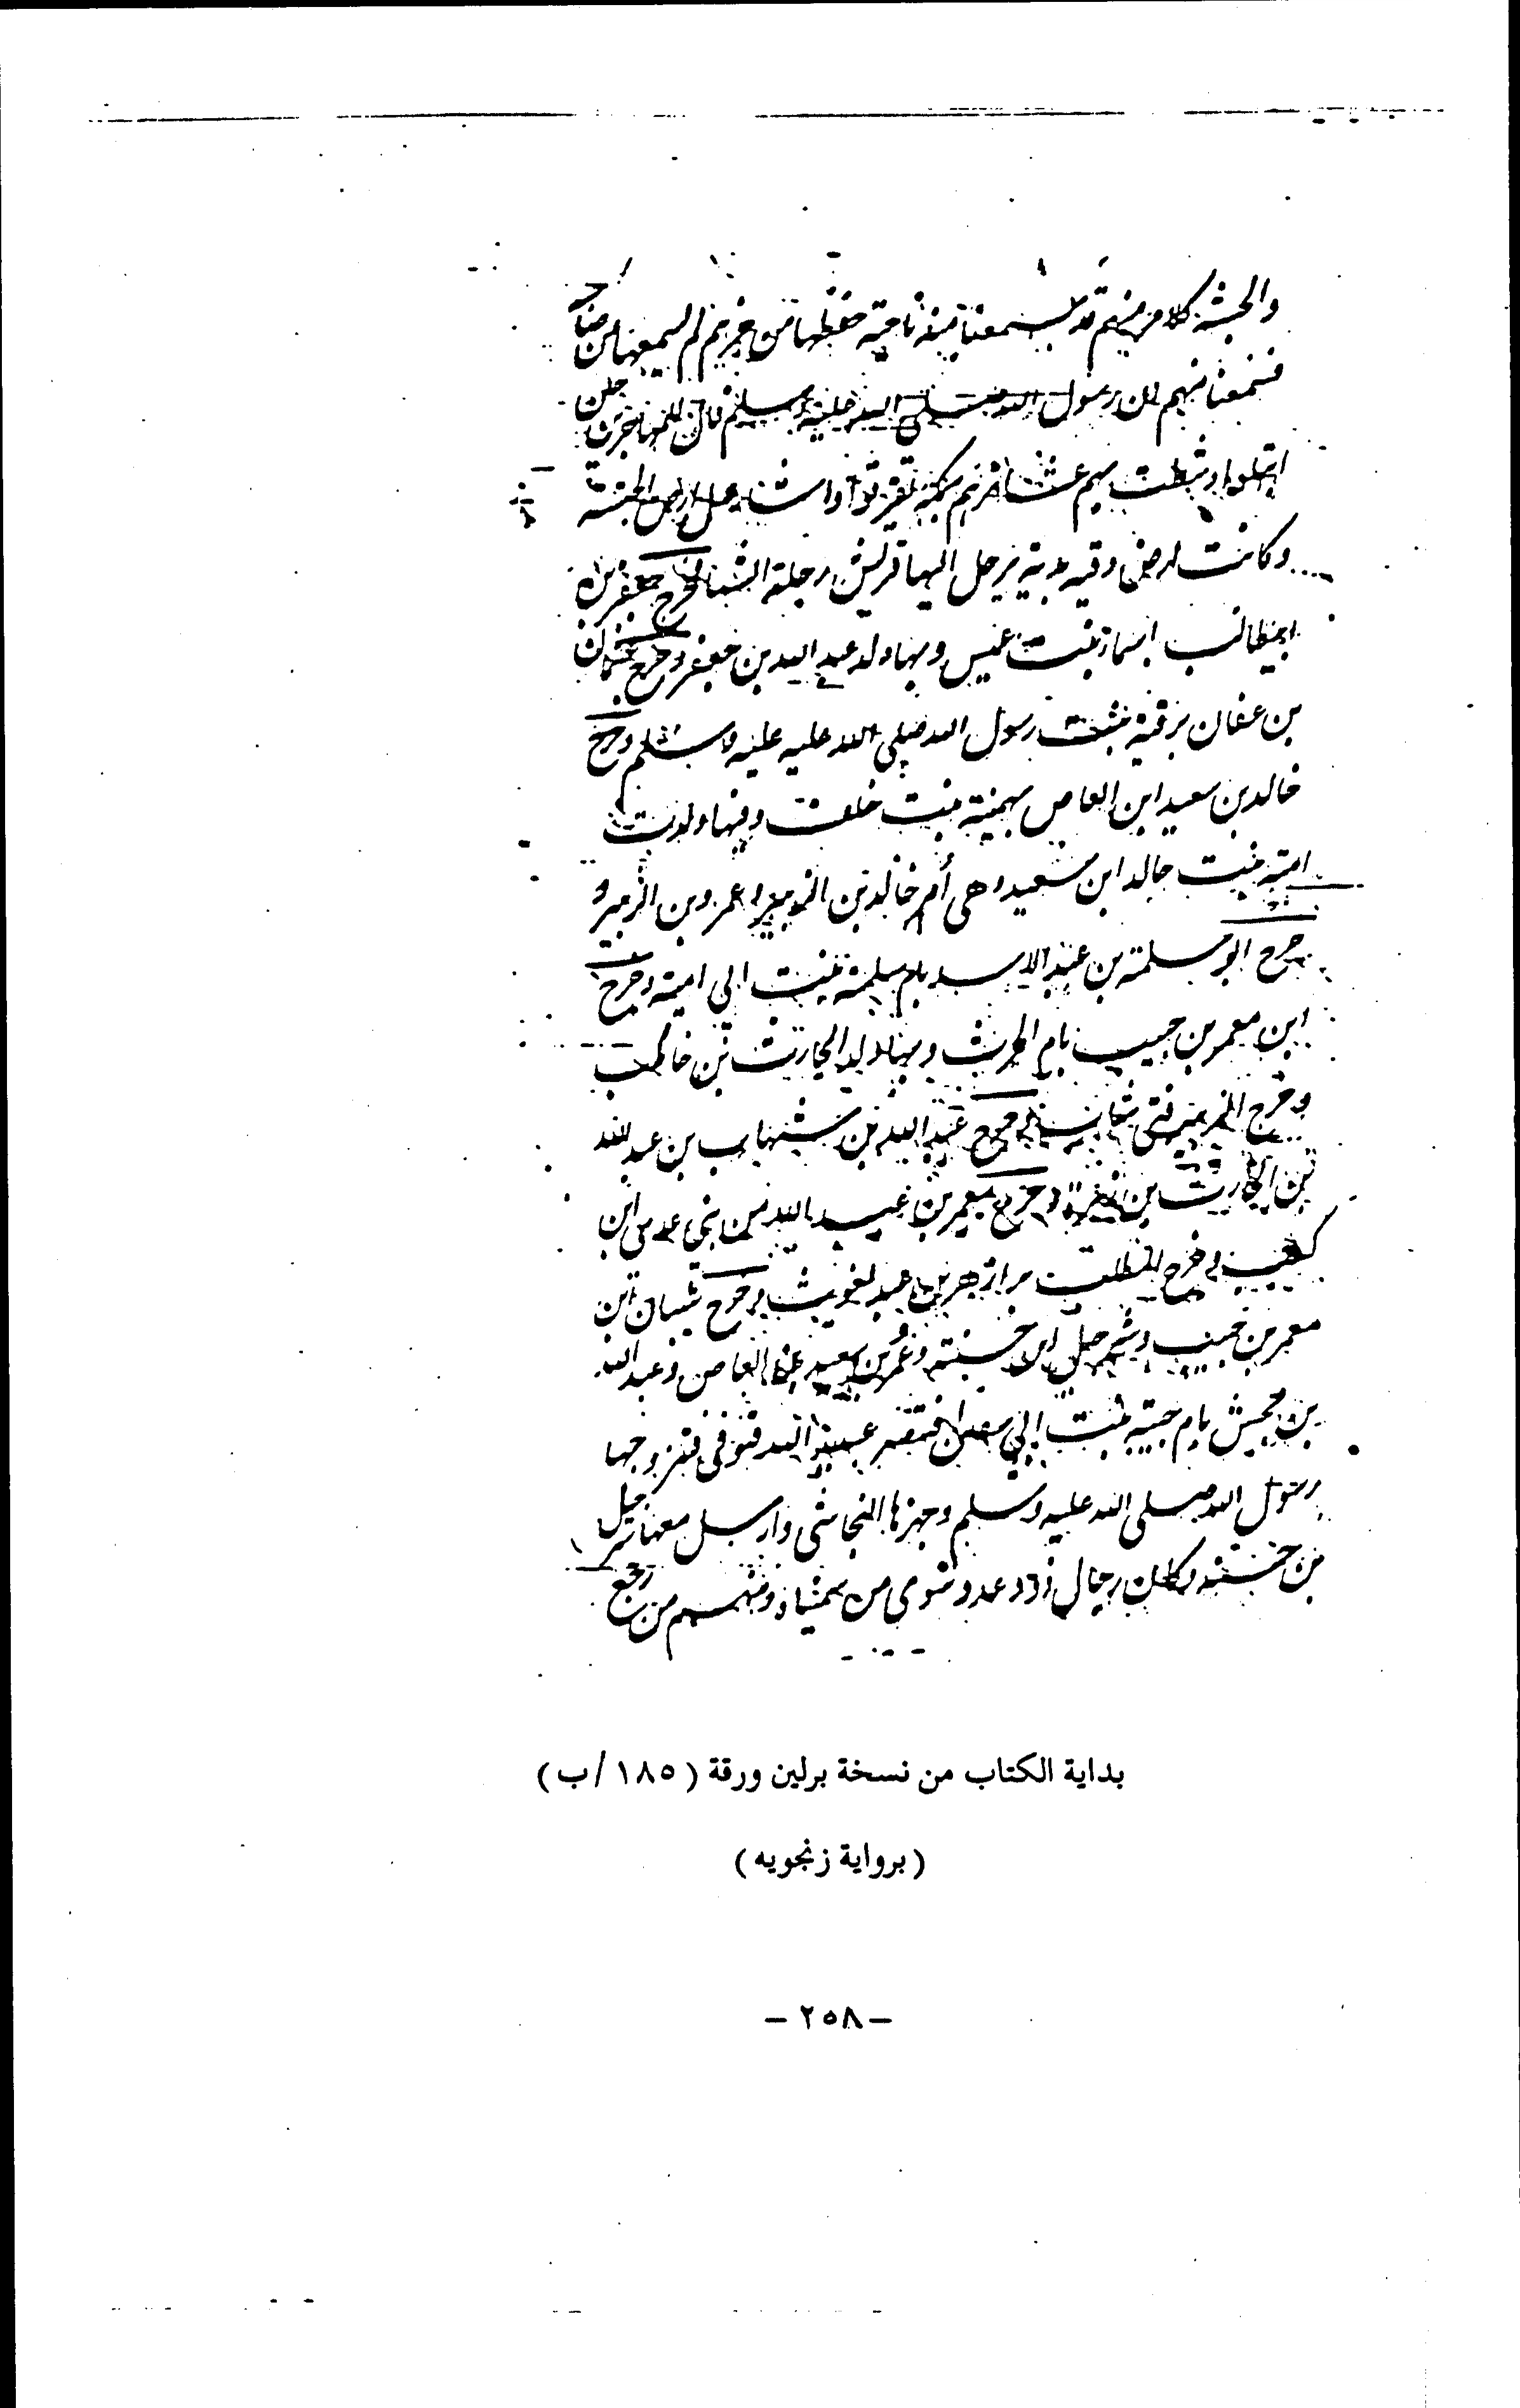 والحبشة كلا من منهم قد سمعنا منه ناحية حفظها من غيرهم لم يسمعها من صاحبه
فسمعنا منهم ان رسول الله صلى الله عليه وسلم قال للمهاجرين حين
ابتلوا وشطت بهم عشائرهم بمكة تفرقوا واشار قبل ارض الحبشة
وكانت ارض دفية يرحل اليها قريش رحلة الشتا فخرج جعفر بن
ابيطالب اسما بنت عميس وبها ولد عبد الله بن جعفر وخرج عثمان
بن عفان برقية بنت رسول الله صلى الله عليه عليه وسلم وخرج
خالد بن سعيد ابن العاص بهمينة بنت خلف وفيها ولدت
امته بنت خالد ابن سعيد وهي أم خالد بن الزبير وعمرو بن الزبير و
خرج ابو سلمة بن عبد الاسد بام سلمة بنت ابي امية وخرج
ابن معمر بن حبيب بام الحرث وبها ولد الحارث بن حاطب
وخرج الزبير فتى شاب خرج عبد الله بن شهاب بن عبد الله
بن الحارث بن زهرة وخرج معمر بن عبد الله من بني عدي ابن
كعب وخرج المطلب بن ازهر بن عبد يغوث وخرج سفيان ابن
معمر بن حبيب وشرحبيل ابن حسنة وعمر بن سعيد بن العاص وعبد الله
بن جحش بام حبيبة بنت ابي سفيان فتنصر عبيد الله فتوفى فتزوجها
رسول الله صلى الله عليه وسلم وجهزها النجاشي وارسل معها شرحبيل
بن حسنة وكان رجال ذوو عدد سوى من سمينا ومنهم من رجع
بداية الكتاب من نسخة برلين ورقة (١٨٥/ب)
(برواية زنجويه)
– ٢٥٨ –